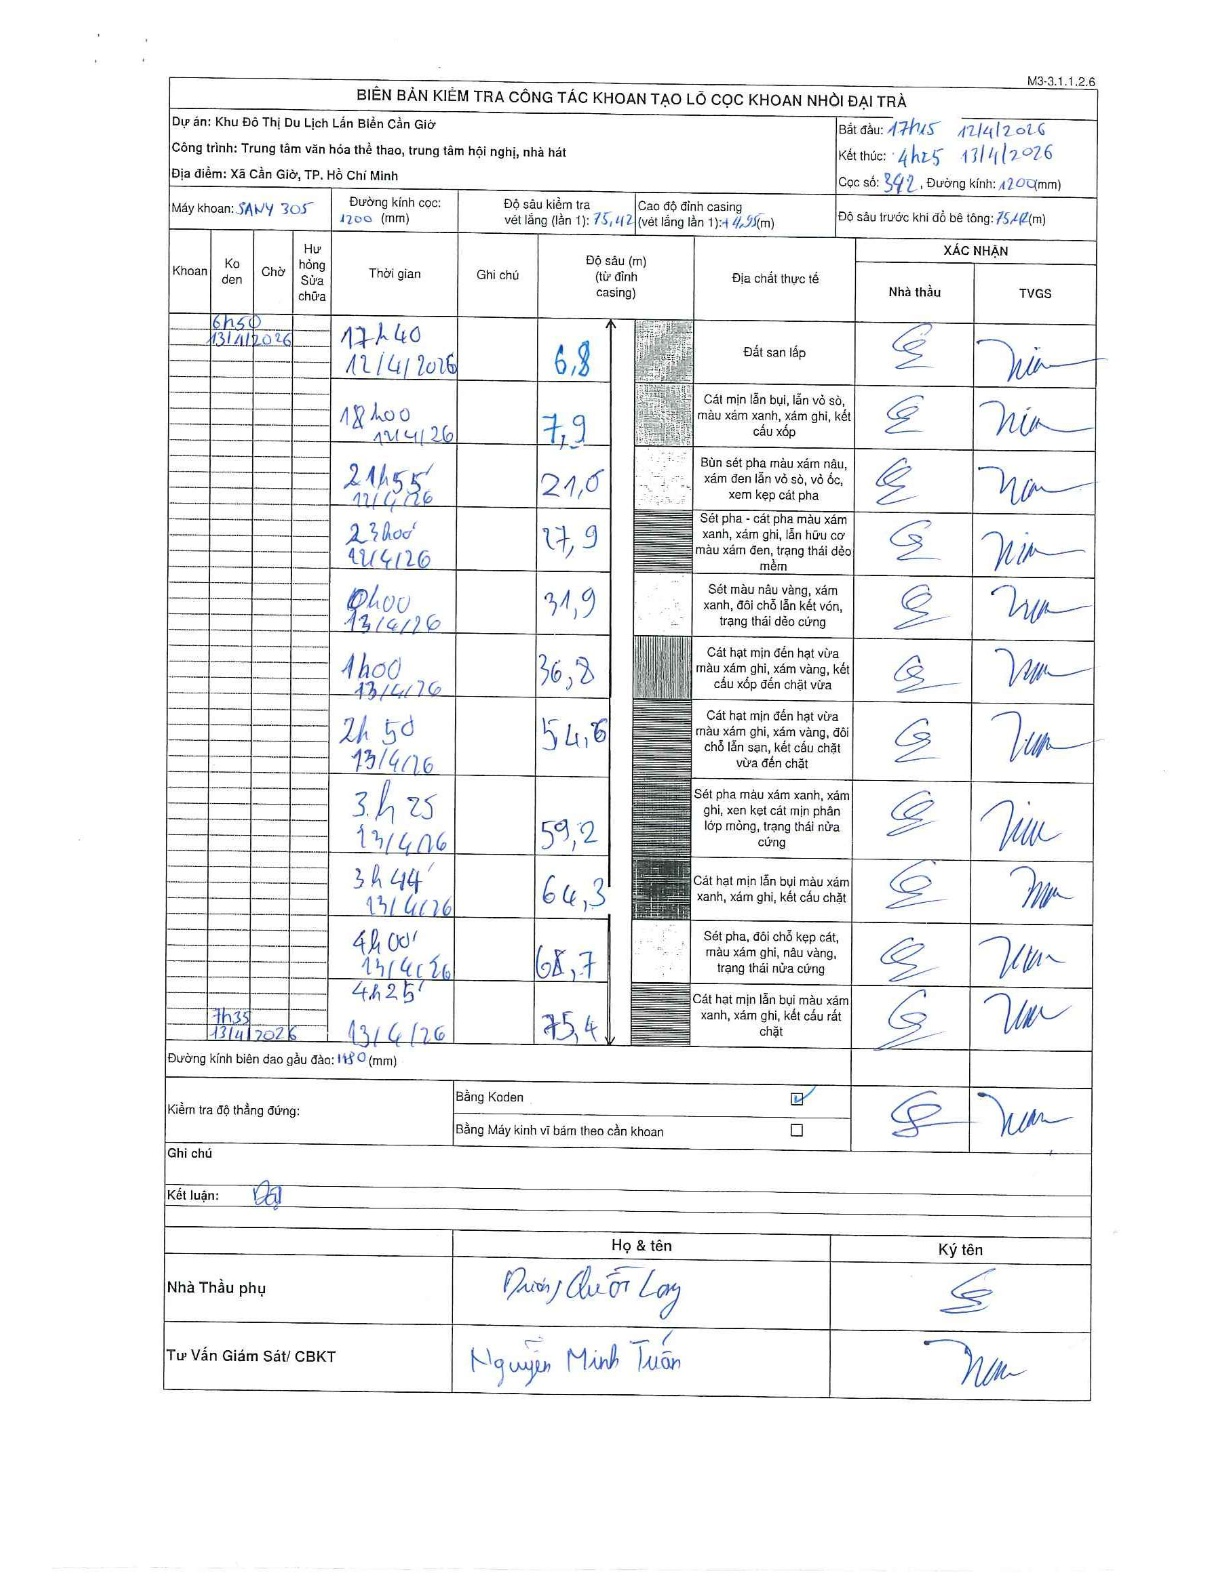 M3-3.1.1.2.6
BIÊN BẢN KIỂM TRA CÔNG TÁC KHOAN TẠO LỖ CỌC KHOAN NHỒI ĐẠI TRÀ
Dự án: Khu Đô Thị Du Lịch Lấn Biển Cần Giờ
Công trình: Trung tâm văn hóa thể thao, trung tâm hội nghị, nhà hát
Địa điểm: Xã Cần Giờ, TP. Hồ Chí Minh
Bắt đầu: 17h15 12/4/2026
Kết thúc: 4h25 13/4/2026
Cọc số: 342, Đường kính: 1200(mm)
Máy khoan: SANY 305
Đường kính cọc: 1200 (mm)
Độ sâu kiểm tra vét lắng (lần 1): 75,42
Cao độ đỉnh casing (vét lắng lần 1): +4,95(m)
Độ sâu trước khi đổ bê tông: (m)
Khoan
Ko đen
Chờ
Hư hỏng Sửa chữa
Thời gian
Ghi chú
Độ sâu (m) (từ đỉnh casing)
Địa chất thực tế
XÁC NHẬN
Nhà thầu
TVGS
6h50
13/4/2026
17h40
12/4/2026
6,8
Đất san lấp
18h00
12/4/26
7,9
Cát mịn lẫn bụi, lẫn vỏ sò,
màu xám xanh, xám ghi, kết
cấu xốp
21h55'
12/4/26
21,6
Bùn sét pha màu xám nâu,
xám đen lẫn vỏ sò, vỏ ốc,
xem kẹp cát pha
23h00'
12/4/26
27,9
Sét pha - cát pha màu xám
xanh, xám ghi, lẫn hữu cơ
màu xám đen, trạng thái dẻo
mềm
0h00
13/4/26
31,9
Sét màu nâu vàng, xám
xanh, đôi chỗ lẫn kết vón,
trạng thái dẻo cứng
1h00
13/4/26
36,8
Cát hạt mịn đến hạt vừa
màu xám ghi, xám vàng, kết
cấu xốp đến chặt vừa
2h 50
13/4/26
54,6
Cát hạt mịn đến hạt vừa
màu xám ghi, xám vàng, đôi
chỗ lẫn sạn, kết cấu chặt
vừa đến chặt
3h 25
13/4/26
59,2
Sét pha màu xám xanh, xám
ghi, xen kẹt cát mịn phân
lớp mỏng, trạng thái nửa
cứng
3h 44'
13/4/26
64,3
Cát hạt mịn lẫn bụi màu xám
xanh, xám ghi, kết cấu chặt
4h 00'
13/4/26
68,7
Sét pha, đôi chỗ kẹp cát,
màu xám ghi, nâu vàng,
trạng thái nửa cứng
4h25'
7h35
13/4/2026
13/4/26
75,4
Cát hạt mịn lẫn bụi màu xám
xanh, xám ghi, kết cấu rất
chặt
Đường kính biên dao gầu đào: 1180 (mm)
Kiểm tra độ thẳng đứng:
Bằng Koden
Bằng Máy kinh vĩ bám theo cần khoan
Ghi chú
Kết luận: Đạt
Họ & tên
Ký tên
Nhà Thầu phụ
Tư Vấn Giám Sát/ CBKT
Nguyễn Minh Tuấn